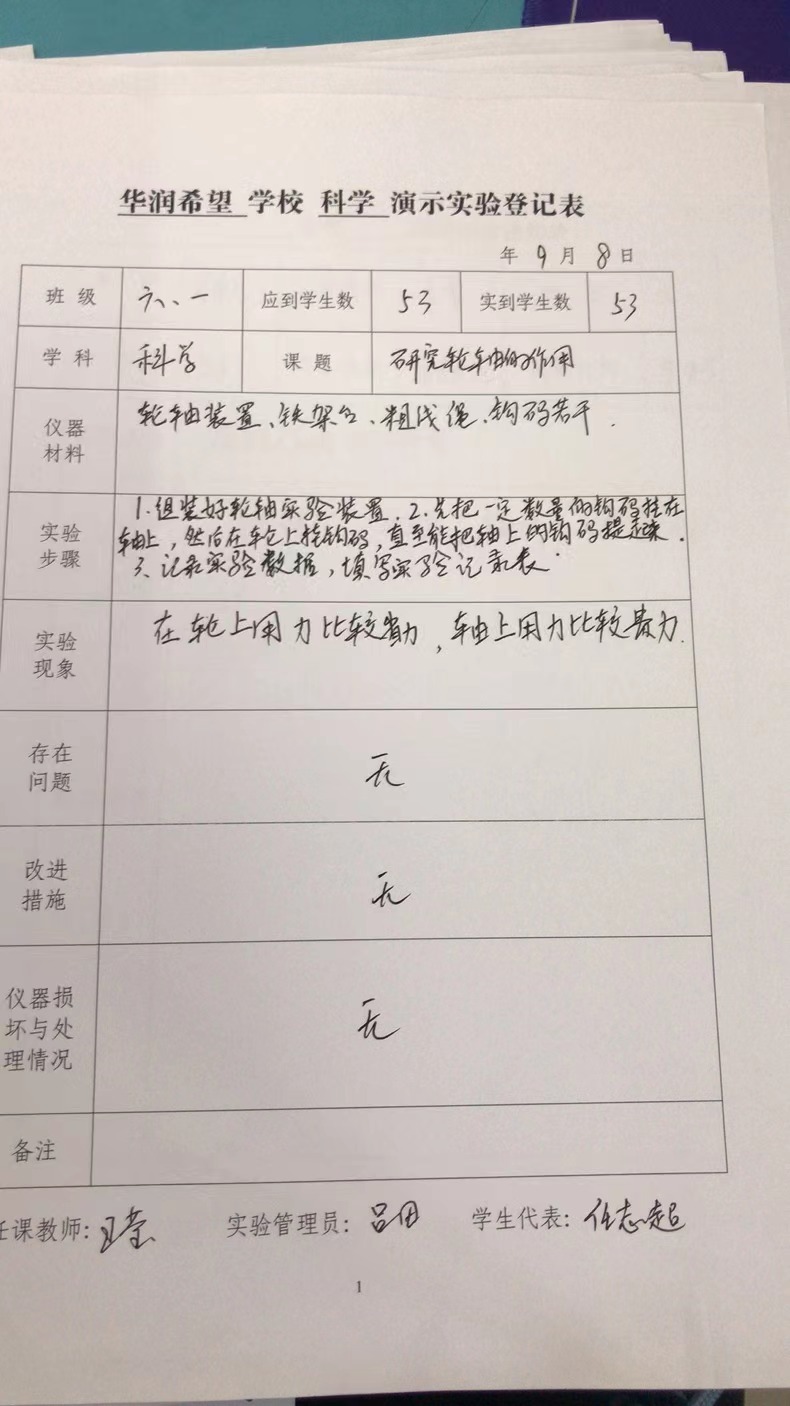 华润希望 学校 科学 演示实验登记表
年 9 月 8 日
班 级 六、一 应到学生数 53 实到学生数 53
学 科 科学 课 题 研究轮轴的作用
仪器材料 轮轴装置、铁架台、粗线绳、钩码若干.
实验步骤 1.组装好轮轴实验装置.2.先把一定数量的钩码挂在
轴上,然后在轮上挂钩码,直至能把轴上的钩码提起来.
3、记录实验数据,填写实验记录表.
实验现象 在轮上用力比较省力,轴上用力比较费力.
存在问题 无
改进措施 无
仪器损坏与处理情况 无
备注
任课教师:王莹 实验管理员:吕田 学生代表:任志超
1